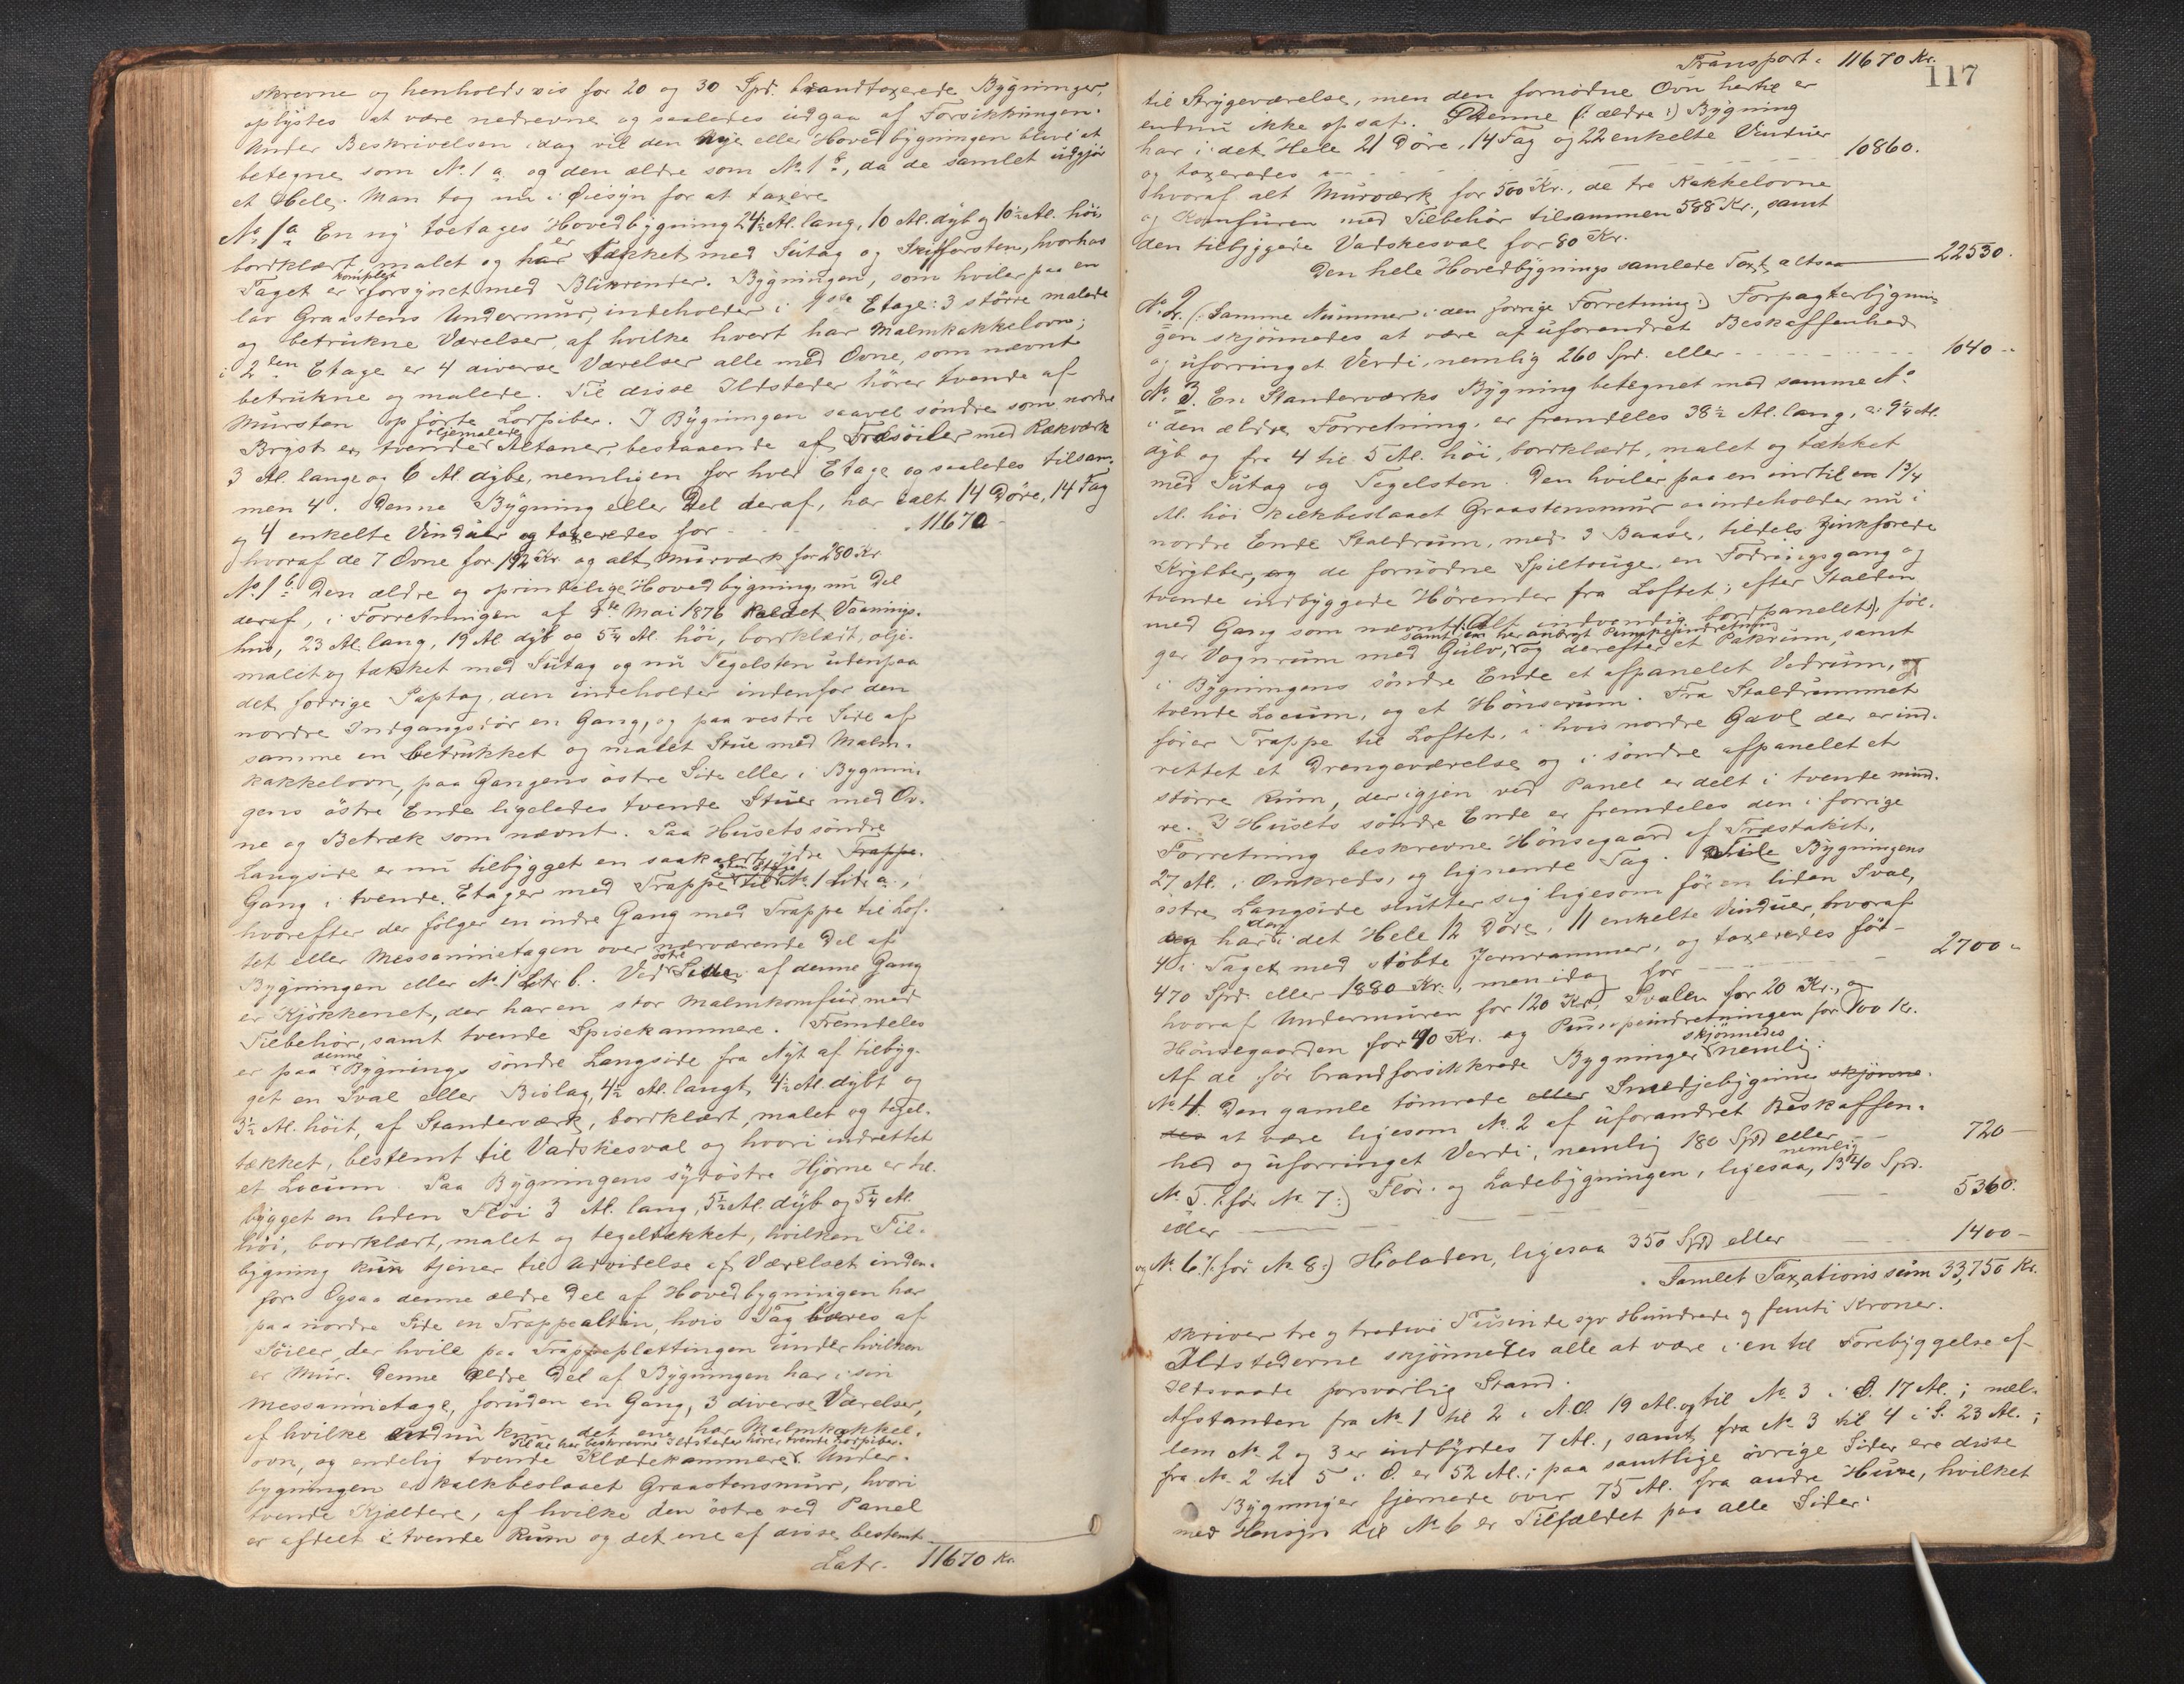 skrevne og henholdsvis for 20 og 30 Spd. brandtaxerede Bygninger,
oplystes at være nedrevne og saaledes udgaa af Forsikkringen.
Under Beskrivelsen idag vil den nye eller Hovedbygningen blive at
betegne som No. 1 a og den ældre som No. 1 b, da de samlet udgjør
et Hele. Man tog nu i Øiesyn for at taxere
No. 1 a En ny toetages Hovedbygning 24½ Al. lang, 10 Al. dyb og 10½ Al. høi,
bordklædt, malet og er tækket med Sutag og Skifforsten, hvorhos
Taget er komplet forsynet med Blikrender. Bygningen, som hviler paa en
lav Graastens Undermur, indeholder i 1ste Etage: 3 större malede
og betrukne Værelser, af hvilke hvert har Malmkakkelovn;
i 2den Etage er 4 diverse Værelser alle med Ovne, som nævnt
betrukne og malede. Til disse Ildsteder hörer tvende af
Mursten opförte Lorpiber. I Bygningen saavel söndre som nordre
Bryst er tvende oljemalede Altaner, bestaaende af Træsöiler med Rækværk
3 Al. lange og 6 Al. dybe, nemlig en for hver Etage og saaledes tilsam-
men 4. Denne Bygning eller Del deraf, har ialt 14 Döre, 14 Fag
og 4 enkelte Vinduer og taxeredes for - - - 11670 -
hvoraf de 7 Ovne for 192 Kr. og alt Murværk for 280 Kr.
No. 1 b Den ældre og oprindelige Hovedbygning, nu Del
deraf, i Forretningen af 8de Mai 1876 kaldet Vaanings-
hus, 23 Al. lang, 19 Al. dyb og 5¼ Al. höi, bordklædt, olje-
malet og tækket med Sutag og nu Tegelsten udenpaa
det forrige Paptag, den indeholder indenfor den
nordre Indgangsdör en Gang, og paa vestre Side af
samme en betrukket og malet Stue med Malm-
kakkelovn, paa Gangens östre Side eller i Bygnin-
gens östre Ende ligeledes tvende Stuer med Ov-
ne og Betræk som nævnt. Paa Husets söndre
Langside er nu tilbygget en saakaldt ydre Trappe-
Gang i tvende Etager med Trappe til No. 1 Litr. a.,
hvorefter der fölger en indre Gang med Trappe til Lof-
tet eller Messanietagen over nærværende Del af
Bygningen eller No. 1 Litr. b. Ved östre Side af denne Gang
er Kjökkenet, der har en stor Malmkomfur med
Tilbehör, samt tvende Spisekammere. Fremdeles
er paa denne Bygnings söndre Langside fra Nyt af tilbyg-
get en Sval eller Bislag, 4½ Al. langt, 4½ Al. dybt og
3½ Al. höit, af Standerværk, bordklædt, malet og tegel-
tækket, bestemt til Vadskesval og hvori indrettet
et Locum. Paa Bygningens sydöstre Hjörne er til-
bygget en liden Flöi 3 Al. lang, 5½ Al. dyb og 5¼ Al.
höi, bordklædt, malet og tegeltækket, hvilken Til-
bygning kun tjener til Udvidelse af Værelset inden-
for. Ogsaa denne ældre Del af Hovedbygningen har
paa nordre Side en Trappealtan, hvis Tag bæres af
Söiler, der hvile paa Trappeplattingen under hvilken
er Mur. Denne ældre Del af Bygningen har i sin
Messanietage, foruden en Gang, 3 diverse Værelser,
af hvilke endnu kun det ene har Malmkakkel-
ovn, og endelig tvende Klædekammere. Til de her beskrevne Ildsteder hörer tvende Lorpiber. Under-
bygningen er kalkbeslaaet Graastensmur, hvori
tvende Kjældere, af hvilke den östre ved Panel
er afdelt i tvende Rum og det ene af disse bestemt
Latr. 11670 Kr.
117
Transport. 11670 Kr.
til Strygeværelse, men den fornödne Ovn hertil er
endnu ikke opsat. Denne (: ældre :) Bygning
har i det Hele 21 Döre, 14 Fag og 22 enkelte Vinduer
og taxeredes - - - 10860.
hvoraf alt Murværk for 500 Kr., de tre Kakkelovne
og Komfuren med Tilbehör tilsammen 588 Kr., samt
den tilbyggede Vadskesval for 80 Kr.
Den hele Hovedbygnings samlede Taxt altsaa 22530.
No. 2 (: Samme Nummer i den forrige Forretning :) Forpagterbygnin-
gen skjönnedes at være af uforandret Beskaffenhed
og uforringet Verdi, nemlig 260 Spd. eller - - - 1040 -
No. 3. En Standerværks Bygning betegnet med samme No.
i den ældre Forretning, er fremdeles 38½ Al. lang, 9¼ Al.
dyb og fra 4 til 5 Al. höi, bordklædt, malet og tækket
med Sutag og Tegelsten. Den hviler paa en indtil 1¾
Al. höi kalkbeslaaet Graastensmur og indeholder nu i
nordre Ende Staldrum, med 3 Baase, tildels Zinkforede
Krybber, og de fornödne Spiltouge, en Fodringsgang og
tvende indbyggede Hörender fra Loftet; efter Stalden
med Gang som nævnt (: Alt indvendig bordpanelet :) föl-
ger Vognrum med Gulv, samt en her anbragt Pumpeindretning og derefter et Pakrum, samt
i Bygningens söndre Ende et afpanelet Vedrum, og
tvende Locum, og et Hönserum. Fra Staldrummet
förer Trappe til Loftet, i hvis nordre Gavl der er ind-
rettet et Drengeværelse og i söndre afpanelet et
större Rum, der igjen ved Panel er delt i tvende mind-
re. I Husets söndre Ende er fremdeles den i forrige
Forretning beskrevne Hönsegaard af Træstakit,
27 Al. i Omkreds, og lignende Tag. Til Bygningens
östre Langside slutter sig ligesom för en liden Sval,
den har i det Hele 12 Döre, 11 enkelte Vinduer, hvoraf
4 i Taget med stöbte Jernrammer, og taxeredes för
470 Spd. eller 1880 Kr., men idag for - - - 2700 -
hvoraf Undermuren for 120 Kr., Svalen for 20 Kr., og
Hönsegaarden for 40 Kr. og Pumpeindretningen for 100 Kr.
Af de för brandforsikkrede Bygninger skjönnedes nemlig:
No. 4. Den gamle tömrede eller Smedjebygning skjönne-
des at være ligesom No. 2 af uforandret Beskaffen-
hed og uforringet Verdi, nemlig 180 Spd. eller - 720 -
No. 5. (: för No. 7 :) Flör- og Ladebygningen, ligesaa, nemlig 1340 Spd.
eller - - - 5360.
og No. 6. (: för No. 8 :) Höladen, ligesaa 350 Spd. eller - - 1400 -
Samlet Taxationssum 33,750 Kr.
skriver tre og tredive Tusinde syv Hundrede og femti Kroner.
Ildstederne skjönnedes alle at være i en til Forebyggelse af
Ildsvaade forsvarlig Stand.
Afstanden fra No. 1 til 2 i N.O. 19 Al. og til No. 3 i O. 17 Al.; mel-
lem No. 2 og 3 er indbyrdes 7 Al., samt fra No. 3 til 4 i S. 23 Al.;
fra No. 2 til 5 i O. er 52 Al.; paa samtlige övrige Sider ere disse
Bygninger fjernede over 75 Al. fra andre Huse, hvilket
med Hensyn til No. 6 er Tilfældet paa alle Sider.